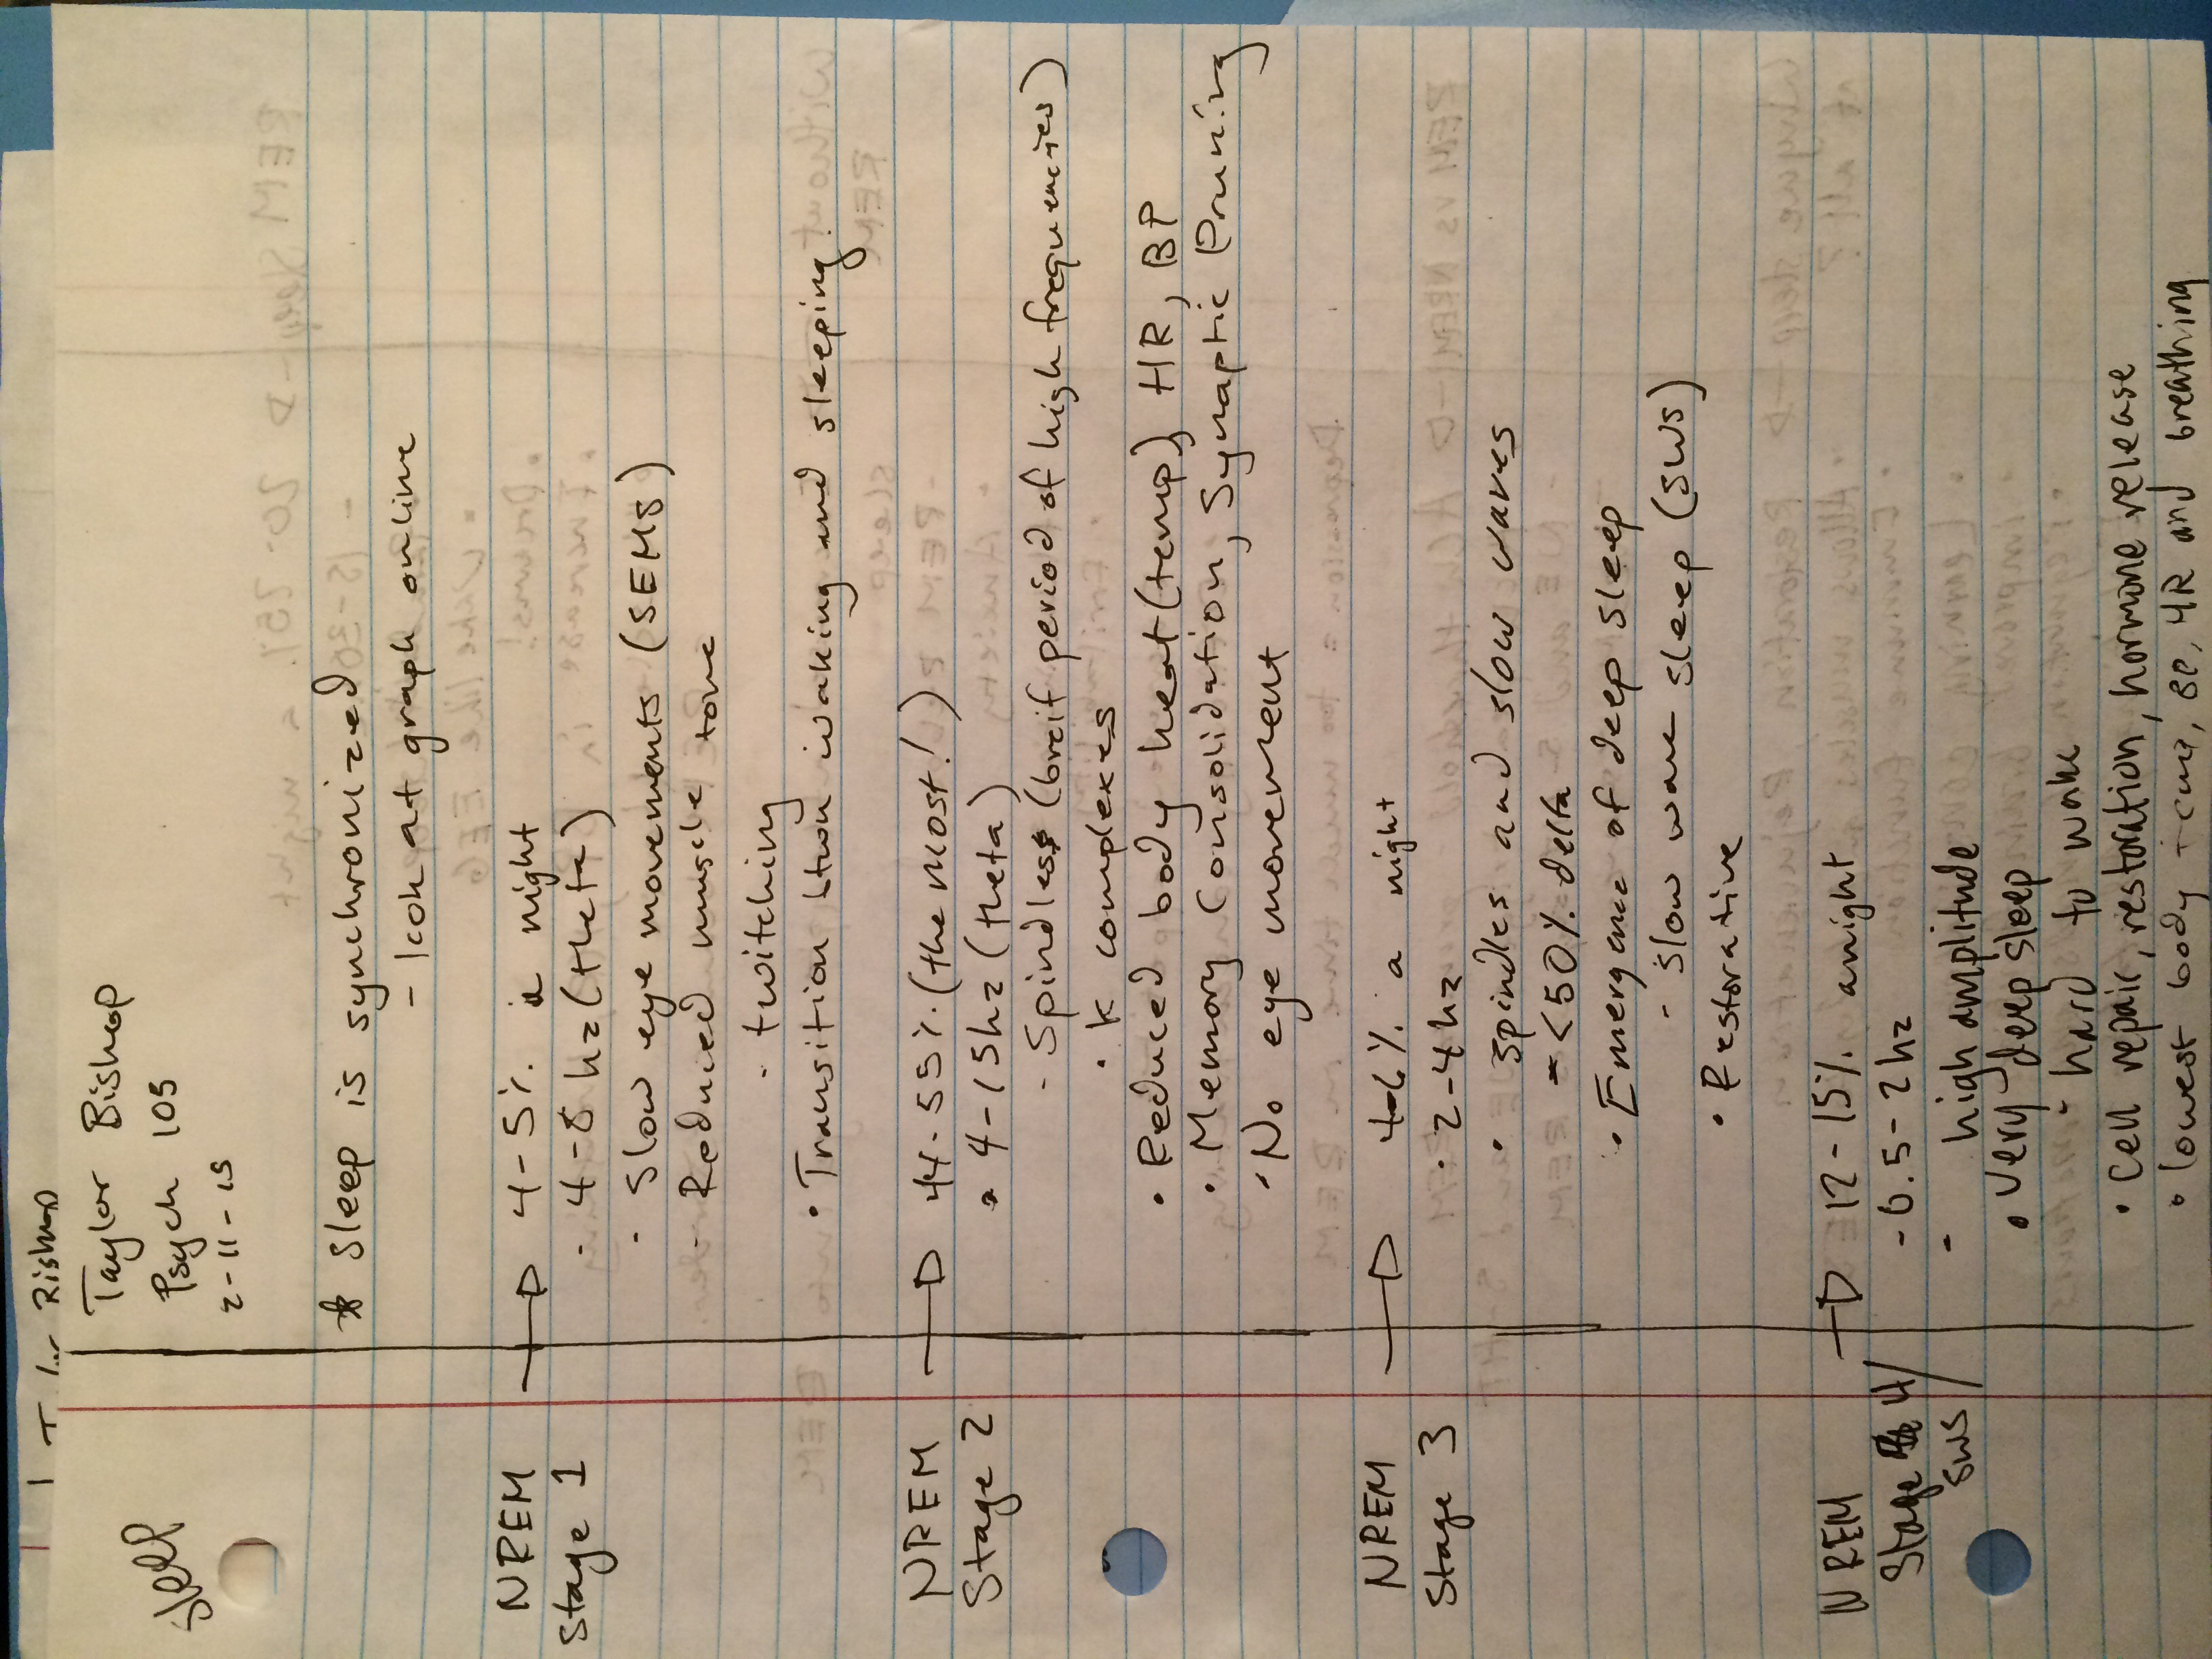 Taylor Bishop
Psych 105
2-11-15
Sleep
* Sleep is synchronized
- look at graph online
NREM Stage 1 → 4-5% a night
· 4-8 hz (theta)
· Slow eye movements (SEMS)
- Reduced muscle tone
- twitching
• Transition btwn waking and sleeping
NREM Stage 2 → 44-55% (the most!)
• 4-15hz (theta)
- Spindles (breif period of high frequencies)
• K complexes
• Reduced body heat (temp), HR, BP
• Memory Consolidation, Synaptic Pruning
• No eye movement
NREM Stage 3 → 4-6% a night
• 2-4hz
• Spindles and slow waves
- <50% delta
• Emergance of deep sleep
- slow wave sleep (SWS)
• Restorative
NREM Stage 4/ SWS → 12-15% anight
- 0.5-2hz
- high amplitude
• very deep sleep
• hard to wake
• Cell repair, restoration, hormone release
• lowest body temp, BP, HR and breathing